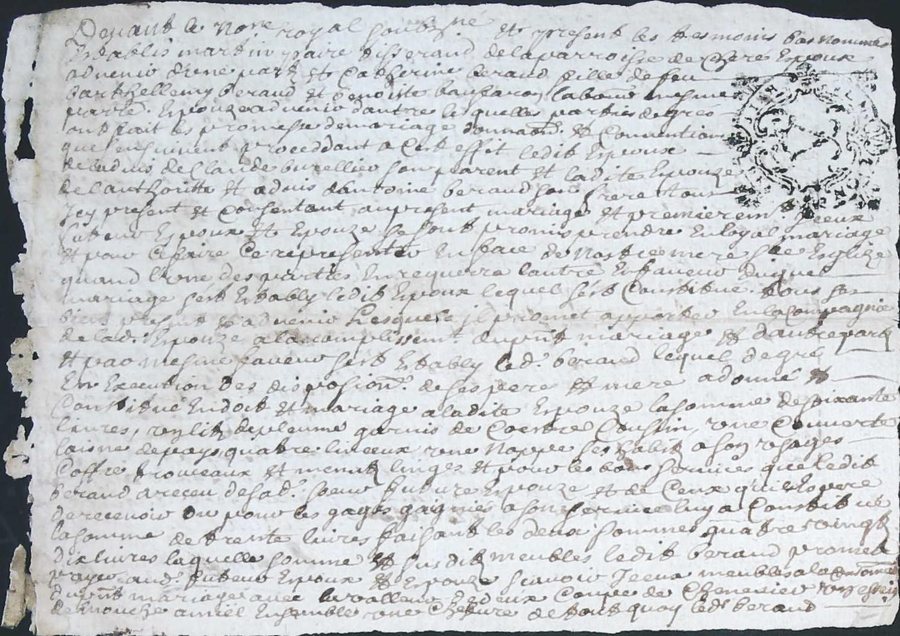 Devant le No.re royal soub.ne et present les tesmoins bas nommes
Establis martin paire tisserand de la parroisse de Espoux
advenir d'une part et Catherine beraud fille de feu
Barthellemy beraud et benoiste laboureur mesme
parr.e Espouze advenir d'autre lesquelles parties de gré
ont fait les promesse de mariage donnaôn et Conventions
que s'ensuivent proceddant a Cest effet ledit Espoux
de ladvis de Claude burellier son parent et ladite Espouze
de l'authoritte et advis d'antoine beraud son frere tous
Icy present et Consentant au present mariage et premierem.t Iceux
futeur Espoux et Espouze se sont promis prendre En loyal mariage
et pour Ce faire Ce representer En face de Nostre mere s.te Esglize
quand l'une des parties En requerra l'autre En faveur duquel
mariage s'est Estably ledit Espoux lequel s'est Constitué tous ses
biens present et advenir Lesquels Il promet apporter En la Compagnie
de lad. Espouze a la complissement du pnt mariage et d'autre part
et par mesme faveur s'est Estably led. beraud lequel de gré
En Execution des disposion.s de ses pere et mere a donné et
Constitué En dot et mariage a ladite Espouze la somme de soixante
livres, un lit de pleume garnis de Coettre Cussin, une Couverte
laine de pays quatre linceux une Nappe ses habits a son usages
Coffre trouceaux et menus linges et pour les bons services que ledit
beraud a receu de sad. soeur future Espouze et de Ceux qu'il Espere
de recevoir ou pour les gages gagnes a son service luy a Constitué
la somme de trente livres faisant les deux sommes quatre vingt
dix livres laquelle somme et susdit meubles ledit beraud promet
payer aud. futeur Espoux et Espouze scavoir Iceux meubles a la
du pnt mariage avec la valleur de deux Coupes de Chenevier
de mouche a miel Ensemble une de tout quoy led. beraud